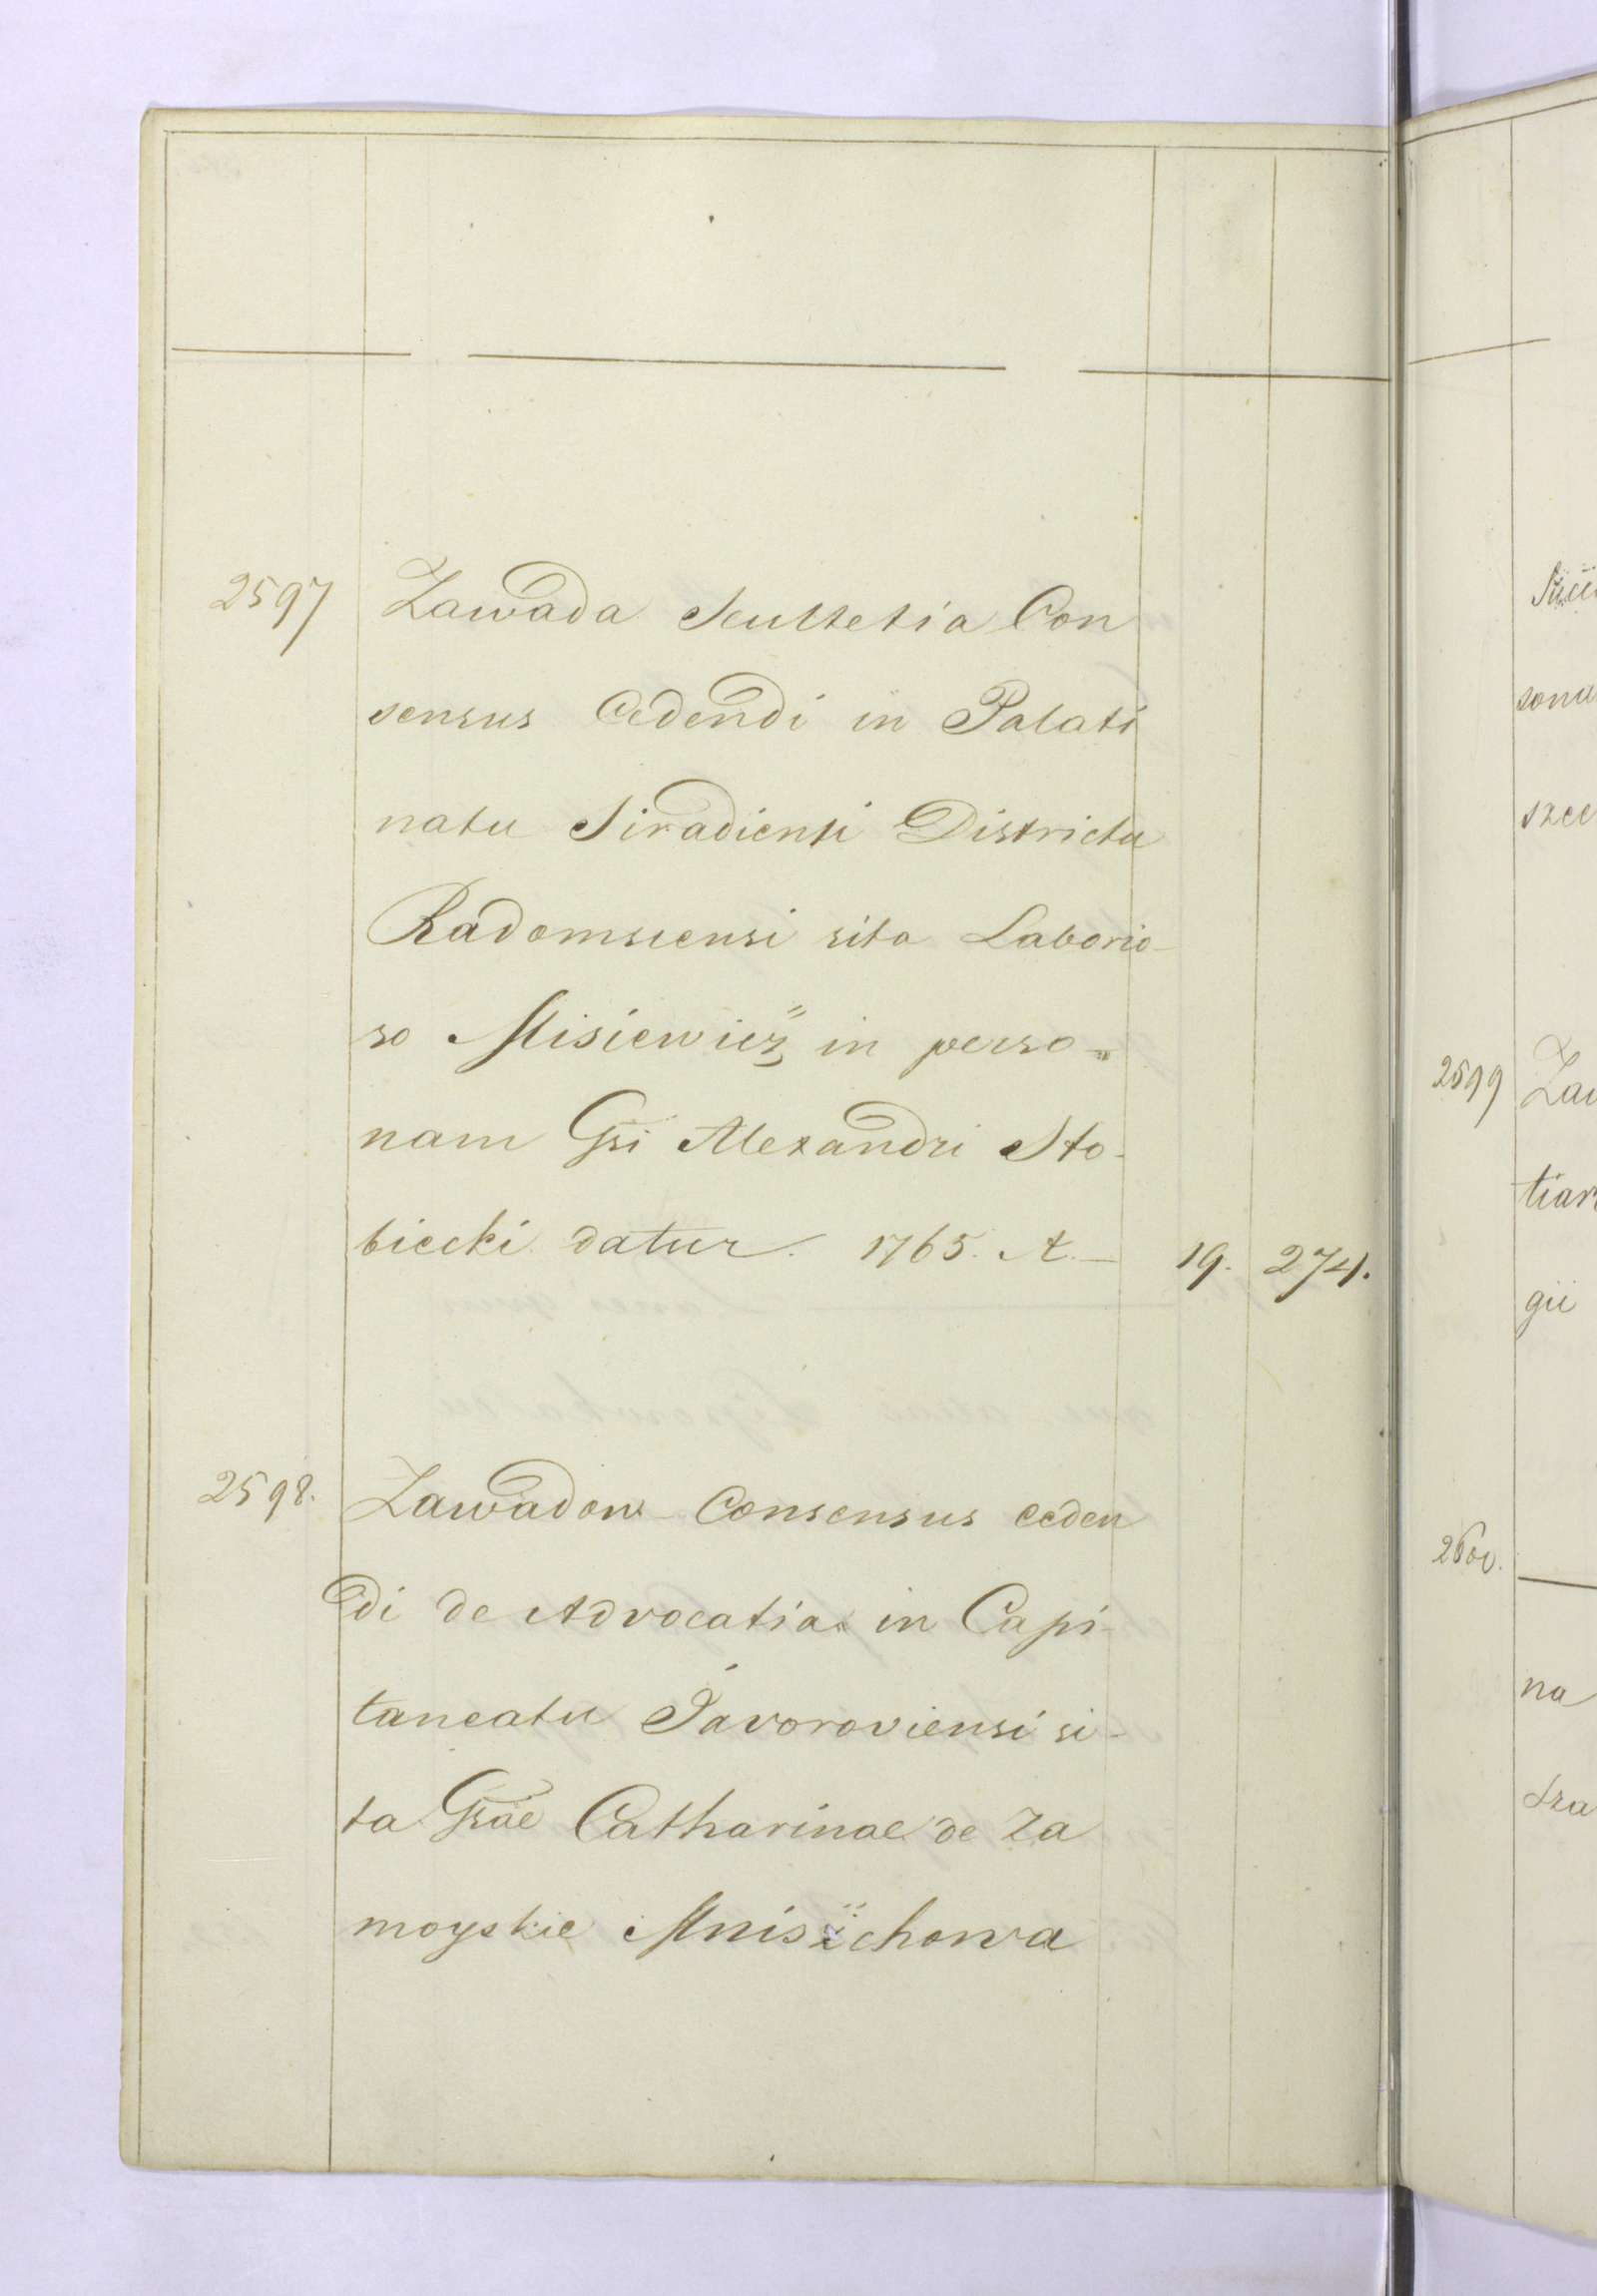 2597 Zawada Scultetia Con
sensus Cedendi in Palati
natu Siradiensi Districtu
Radomscensi sita Laborio-
so Misiewicz in perso=
nam Gsi Alexandri Sto-
biecki datur. 1765. A.— 19. 274.
2598. Zawadow Consensus ceden
di de Advocatia in Capi-
taneatu Javoroviensi si-
ta Gsae Catharinae de Za
moyskie Mniszchowa
2599 Zaw
tiar
gii
2600.
na